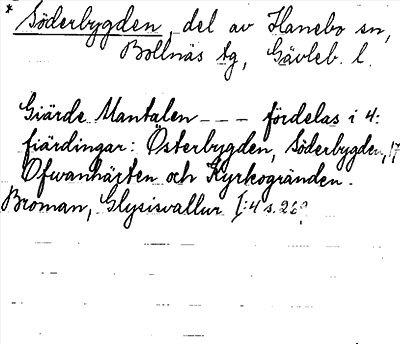 * Söderbygden, del av Hanebo sn,
Bollnäs tg, Gävleb. l.
Giärde Mantalen - - - fördelas i 4:
fiärdingar: Österbygden, Söderbygden, 17
Ofwanhäxten och Kyrkogränden.
Broman, Glysisvallur I:4 s.